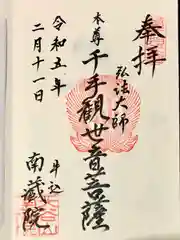 奉拝
弘法大師
本尊 千手観世音菩薩
令和五年
二月十一日
牛込
南蔵院